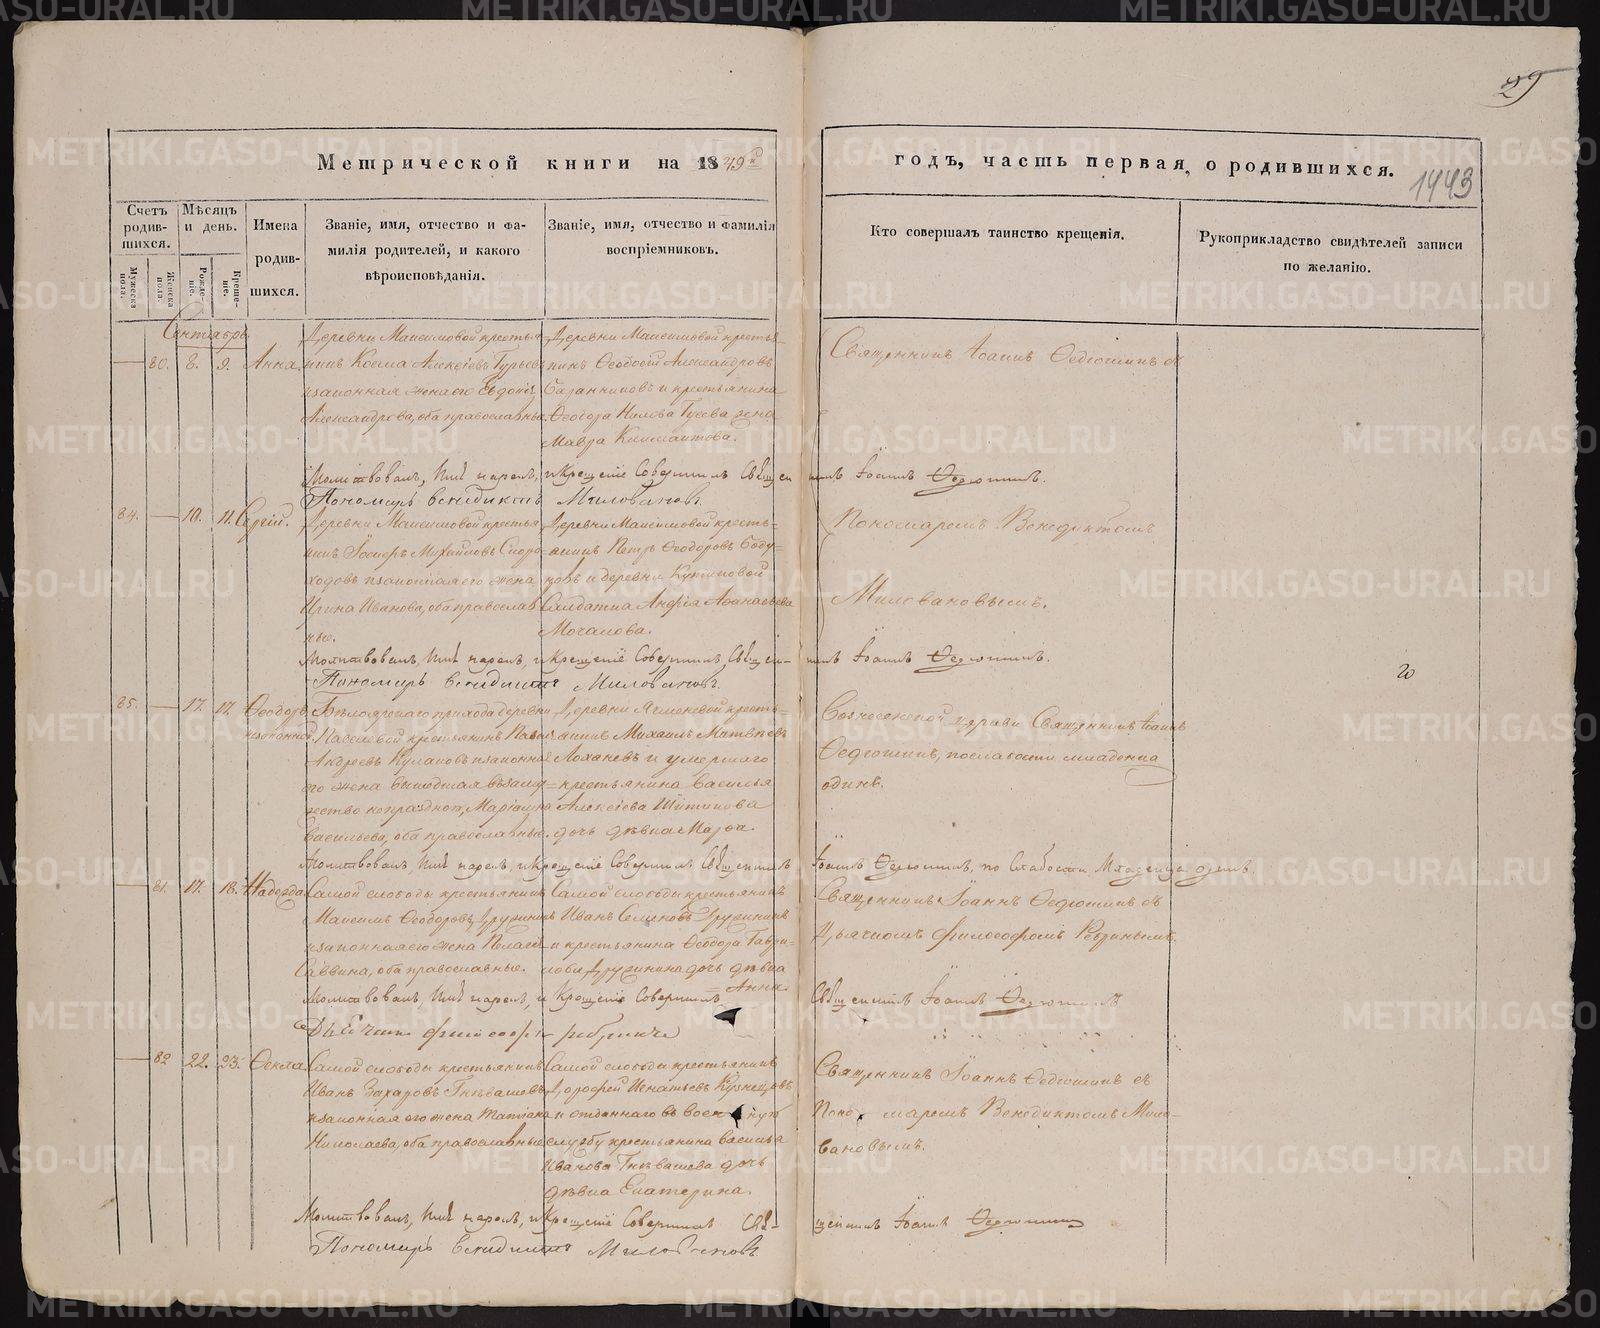 29
Метрической книги на 1849й
годъ, часть первая, о родившихся.
1443
Счетъ родив-шихся.
Мужеска пола.
Женска пола.
Мѣсяцъ и день.
Рожде-ніе.
Креще-ніе.
Имена родив-шихся.
Званіе, имя, отчество и фа-
милія родителей, и какого
вѣроисповѣданія.
Званіе, имя, отчество и фамилія
воспріемниковъ.
Кто совершалъ таинство крещенія.
Рукоприкладство свидѣтелей записи
по желанію.
Сентябрь
80. 8. 9. Анна
Деревни Максимовой крестья
нинъ Косма Алексѣевъ Гурьевъ
и законная жена его Евдокія
Александрова, оба православные.
Деревни Максимовой крестья-
нинъ Ѳеодосій Александровъ
и крестьянина
Ѳеодора Нилова Гусева жена
Мавра Климантова.
Священникъ Іоаннъ Ѳедюшинъ съ
Молитвовалъ, имя нарекъ, и крещеніе совершилъ Священникъ Іоаннъ Ѳедюшинъ.
Пономарь Венидиктъ Миловановъ.
84. 10. 11. Сергій.
Деревни Максимовой крестья
нинъ Іосифъ Михайловъ Скоро-
ходовъ и законная его жена
Ирина Иванова, оба православ
ные.
Деревни Максимовой кресть-
янинъ Петръ Ѳеодоровъ
и деревни
Солдатка Анфія Аѳанасьева
Мочалова.
Пономаремъ Венедиктомъ
Миловановымъ.
Молитвовалъ, имя нарекъ, и крещеніе совершилъ Священникъ Іоаннъ Ѳедюшинъ.
Пономарь Венидиктъ Миловановъ.
85. 17. 17. Ѳеодоръ
незаконной
Бѣлоярскаго прихода деревни
крестьянинъ
Андреевъ Кулаковъ и законная
его жена бывшая въ замуж-
Васильева, оба православные.
Деревни Ячменевой кресть-
янинъ Михаилъ Матвѣевъ
и умершаго
крестьянина Василья
Алексѣева
дочь дѣвка Марѳа.
Вознесенской церкви Священникъ Іоаннъ
Ѳедюшинъ, по слабости младенца
одинъ.
Молитвовалъ, имя нарекъ, и крещеніе совершилъ Священникъ Іоаннъ Ѳедюшинъ, по слабости младенца одинъ.
81. 17. 18. Надежда
Самой слободы крестьянинъ
Максимъ Ѳеодоровъ Дружининъ
и законная его жена Пелагея
Саввина, оба православные.
Самой слободы крестьянинъ
Иванъ Семеновъ Дружининъ
и крестьянина Ѳеодора Гаври-
лова Дружинина дочь дѣвка
Анна.
Священникъ Іоаннъ Ѳедюшинъ съ
Дьячкомъ Философомъ Ребринымъ.
Молитвовалъ, имя нарекъ, и крещеніе совершилъ Священникъ Іоаннъ Ѳедюшинъ
82 22. 23. Ѳекла
Самой слободы крестьянинъ
Иванъ Захаровъ Гнѣвашевъ
и законная его жена Татіана
Николаева, оба православные
Самой слободы крестьянинъ
Дорофей Игнатьевъ Кузнецовъ
и отданнаго въ военную
службу крестьянина Василья
Иванова Гнѣвашева дочь
дѣвка Екатерина.
Священникъ Іоаннъ Ѳедюшинъ съ
Пономаремъ Венедиктомъ Мило-
вановымъ.
Молитвовалъ, имя нарекъ, и крещеніе совершилъ Священникъ Іоаннъ Ѳедюшинъ
Пономарь Венидиктъ Миловановъ
METRIKI.GASO-URAL.RU